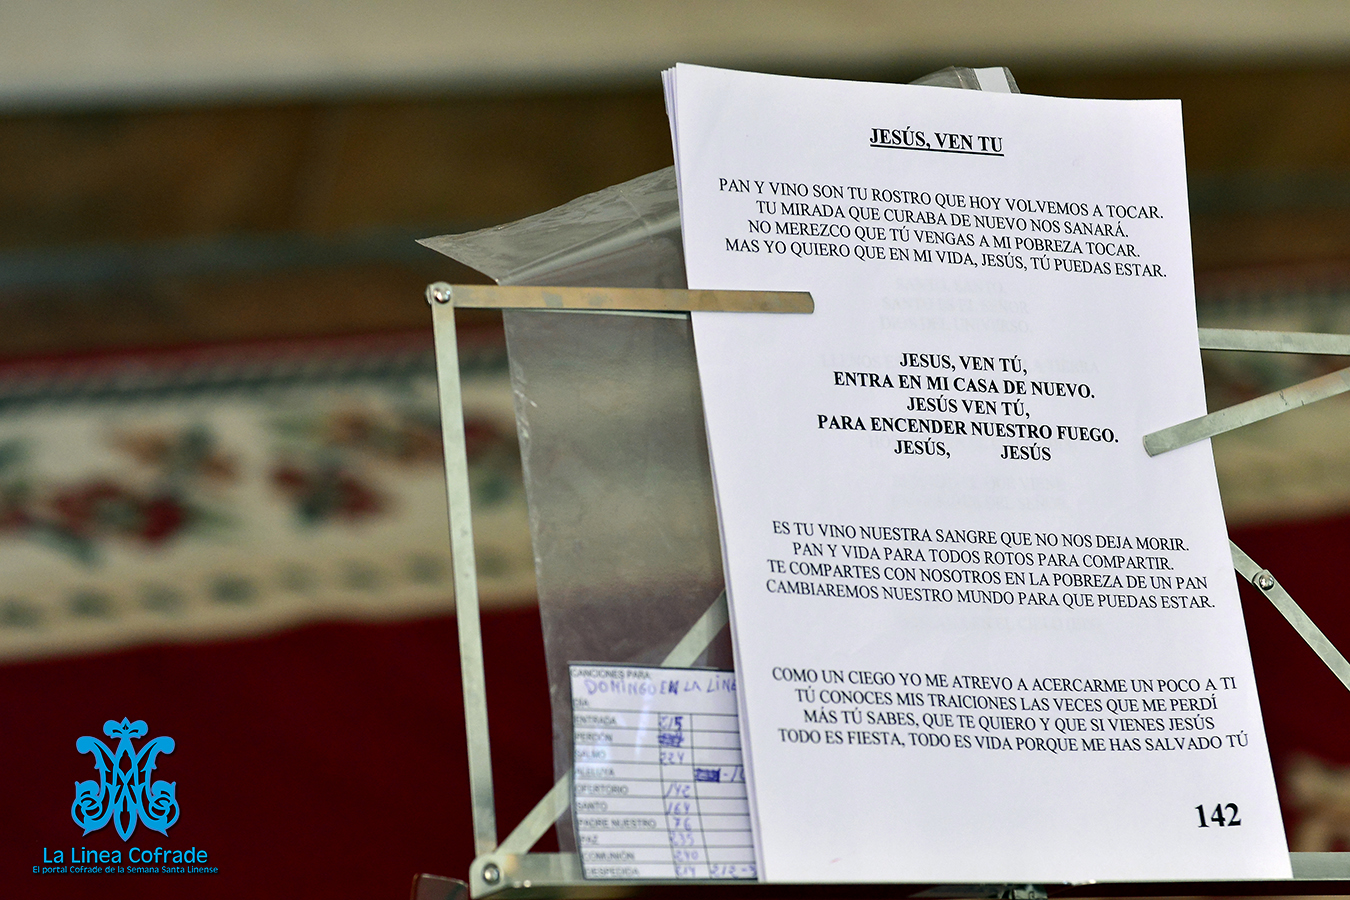 JESÚS, VEN TU
PAN Y VINO SON TU ROSTRO QUE HOY VOLVEMOS A TOCAR.
TU MIRADA QUE CURABA DE NUEVO NOS SANARÁ.
NO MEREZCO QUE TÚ VENGAS A MI POBREZA TOCAR.
MAS YO QUIERO QUE EN MI VIDA, JESÚS, TÚ PUEDAS ESTAR.
JESUS, VEN TÚ,
ENTRA EN MI CASA DE NUEVO.
JESÚS VEN TÚ,
PARA ENCENDER NUESTRO FUEGO.
JESÚS, JESÚS
ES TU VINO NUESTRA SANGRE QUE NO NOS DEJA MORIR.
PAN Y VIDA PARA TODOS ROTOS PARA COMPARTIR.
TE COMPARTES CON NOSOTROS EN LA POBREZA DE UN PAN
CAMBIAREMOS NUESTRO MUNDO PARA QUE PUEDAS ESTAR.
COMO UN CIEGO YO ME ATREVO A ACERCARME UN POCO A TI
TÚ CONOCES MIS TRAICIONES LAS VECES QUE ME PERDÍ
MÁS TÚ SABES, QUE TE QUIERO Y QUE SI VIENES JESÚS
TODO ES FIESTA, TODO ES VIDA PORQUE ME HAS SALVADO TÚ
142
CANCIONES PARA:
DOMINGO EN LA LINE
DÍA:
ENTRADA 215
PERDÓN
SALMO 224
ALELUYA
OFERTORIO 142
SANTO 164
PADRE NUESTRO 76
PAZ 235
COMUNIÓN 240
DESPEDIDA 214 212-
La Linea Cofrade
El portal Cofrade de la Semana Santa Linense